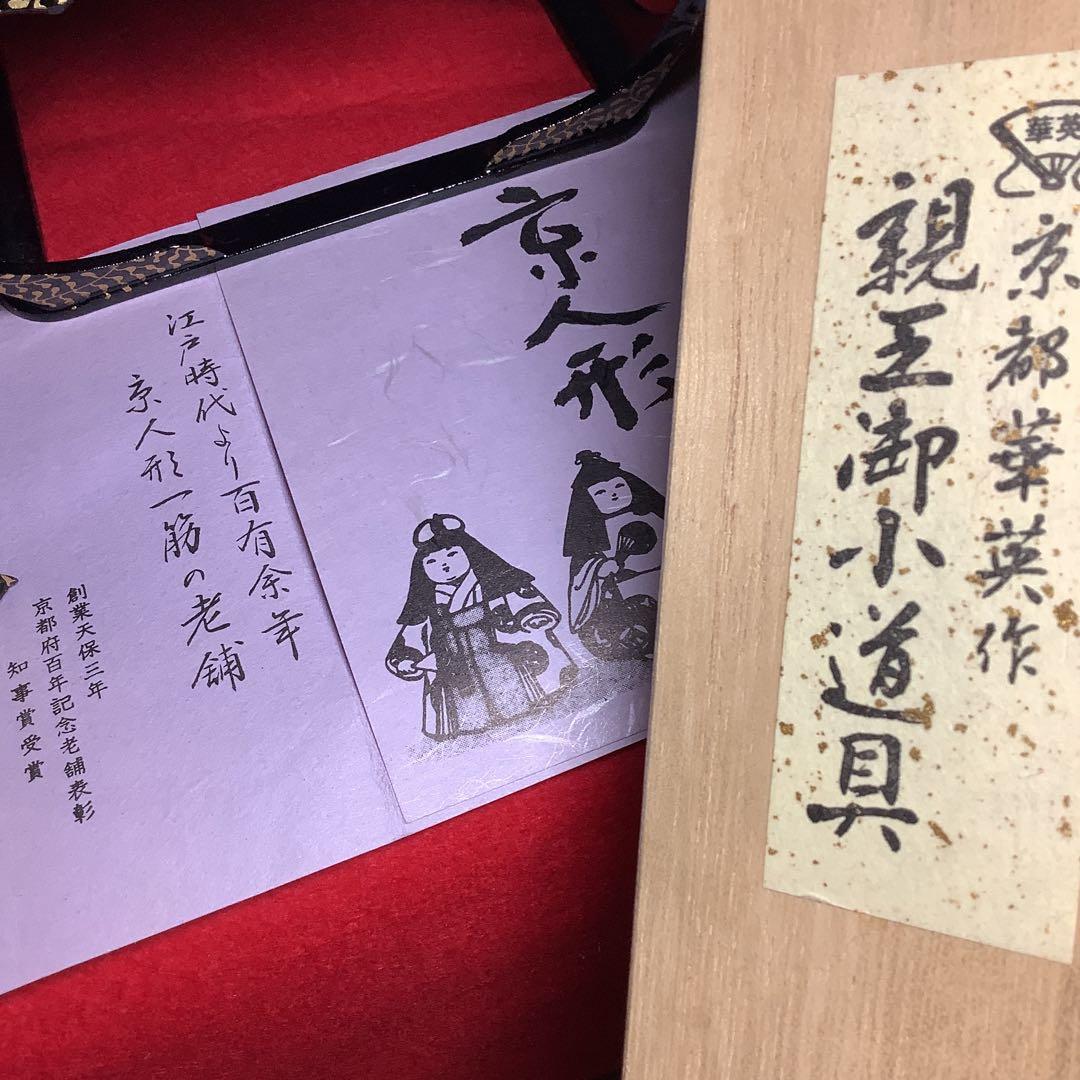 華英
京都華英作
親王御小道具
京人形
江戸時代より百有余年
京人形一筋の老舗
創業天保三年
京都府百年記念老舗表彰
知事賞受賞